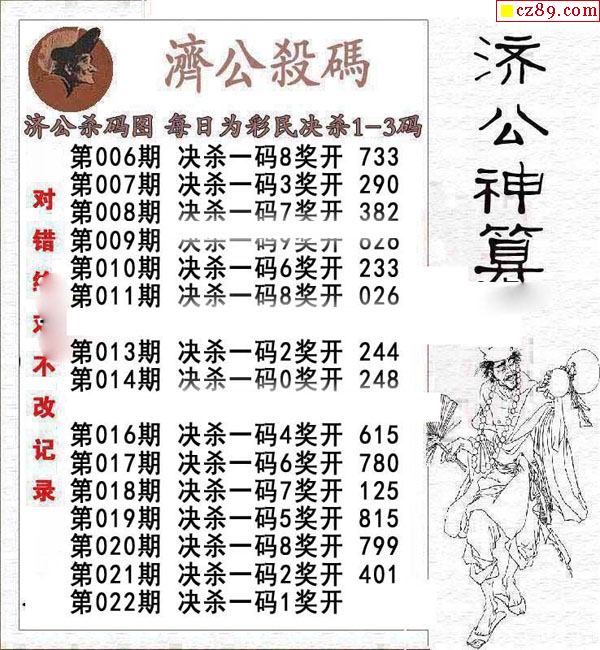 cz89.com
濟公殺碼
济公杀码图 每日为彩民决杀1-3码
第006期 决杀一码8奖开 733
第007期 决杀一码3奖开 290
第008期 决杀一码7奖开 382
第009期 决杀一码9奖开
第010期 决杀一码6奖开 233
第011期 决杀一码8奖开 026
第013期 决杀一码2奖开 244
第014期 决杀一码0奖开 248
第016期 决杀一码4奖开 615
第017期 决杀一码6奖开 780
第018期 决杀一码7奖开 125
第019期 决杀一码5奖开 815
第020期 决杀一码8奖开 799
第021期 决杀一码2奖开 401
第022期 决杀一码1奖开
对错
不改记录
济公神算